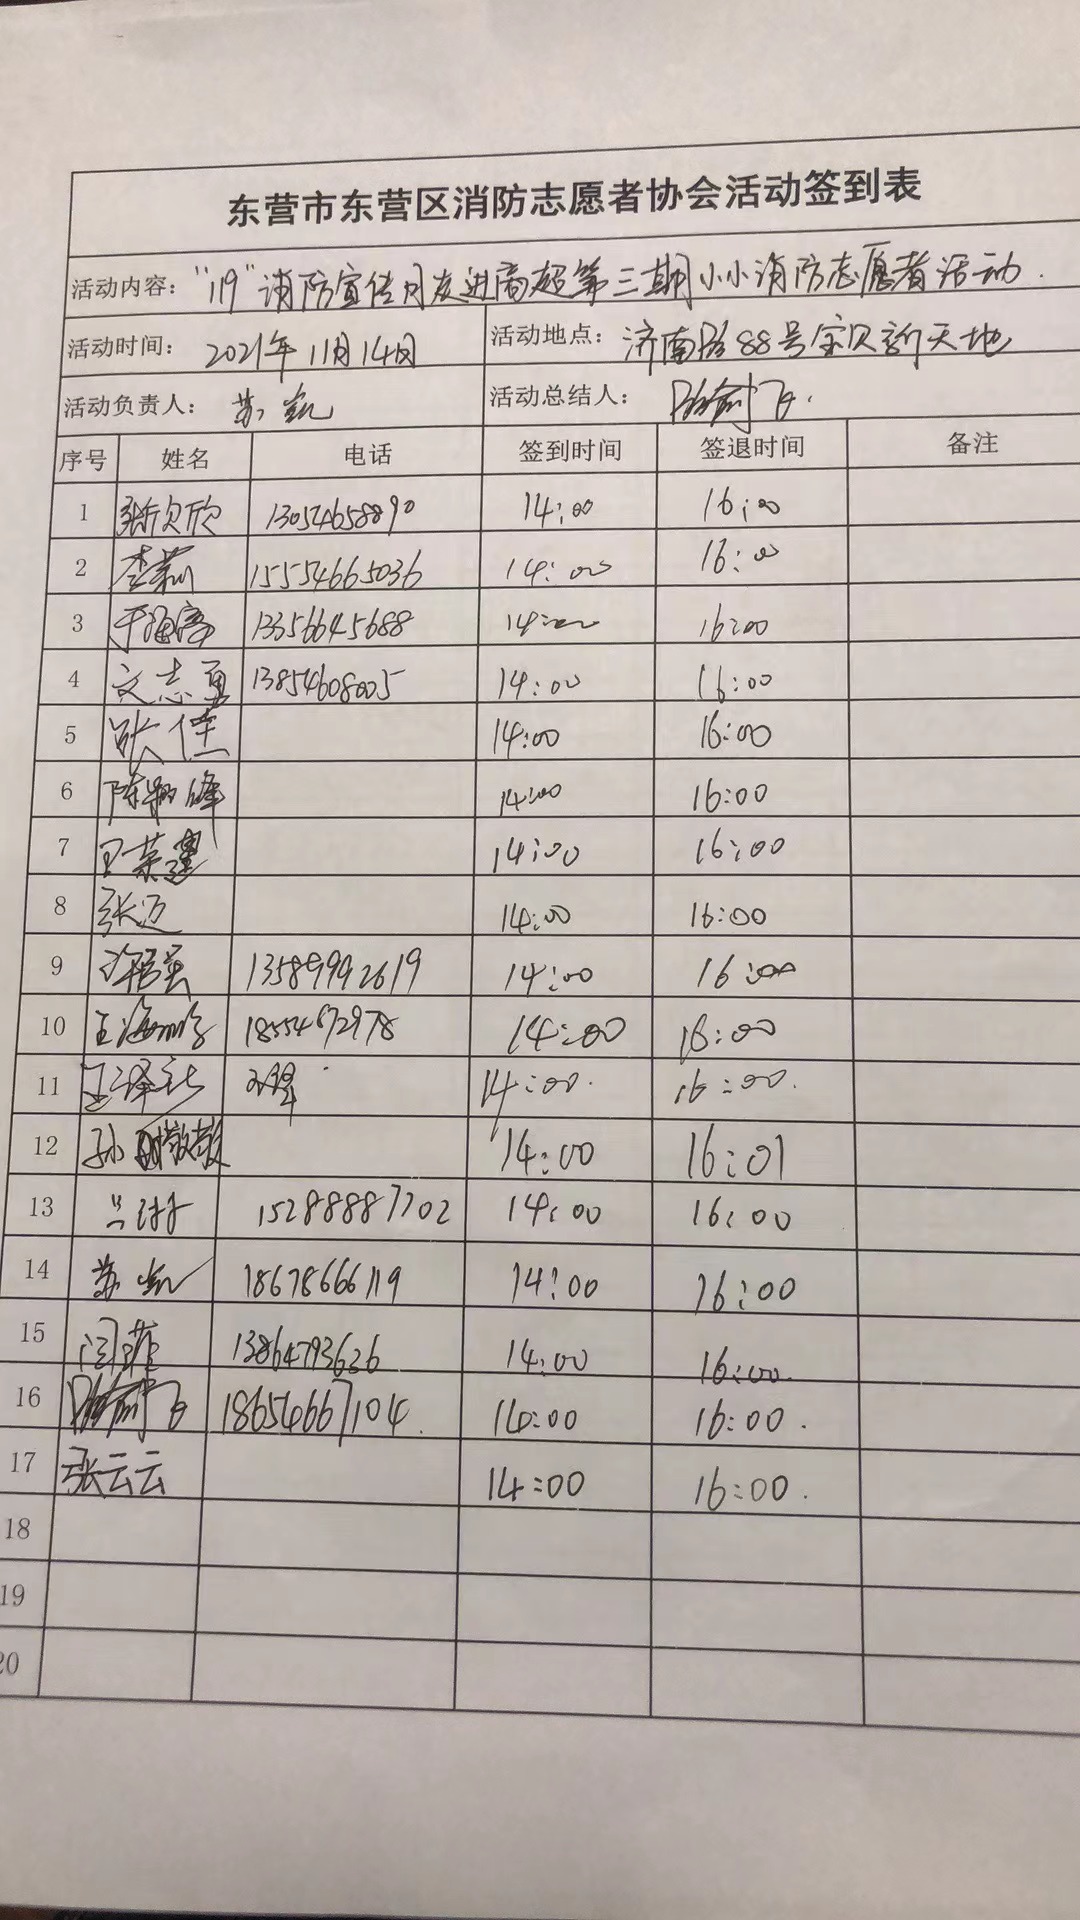 东营市东营区消防志愿者协会活动签到表
活动内容: "119"消防宣传月走进商超第三期小小消防志愿者活动.
活动时间: 2021年11月14日 活动地点: 济南路88号宝贝新天地
活动负责人: 苏凯 活动总结人:
序号 姓名 电话 签到时间 签退时间 备注
1 13054658890 14:00 16:00
2 李莉 15554665036 14:00 16:00
3 13356645688 14:00 16:00
4 文志勇 13854608005 14:00 16:00
5 张佳 14:00 16:00
6 14:00 16:00
7 14:00 16:00
8 张迈 14:00 16:00
9 13589992619 14:00 16:00
10 18554672978 14:00 16:00
11 14:00. 16:00.
12 孙 敬敬 14:00 16:01
13 15288887702 14:00 16:00
14 苏凯 18678666119 14:00 16:00
15 闫 13864793626 14:00 16:00.
16 18654667104. 14:00 16:00.
17 张云云 14:00 16:00.
18
19
20